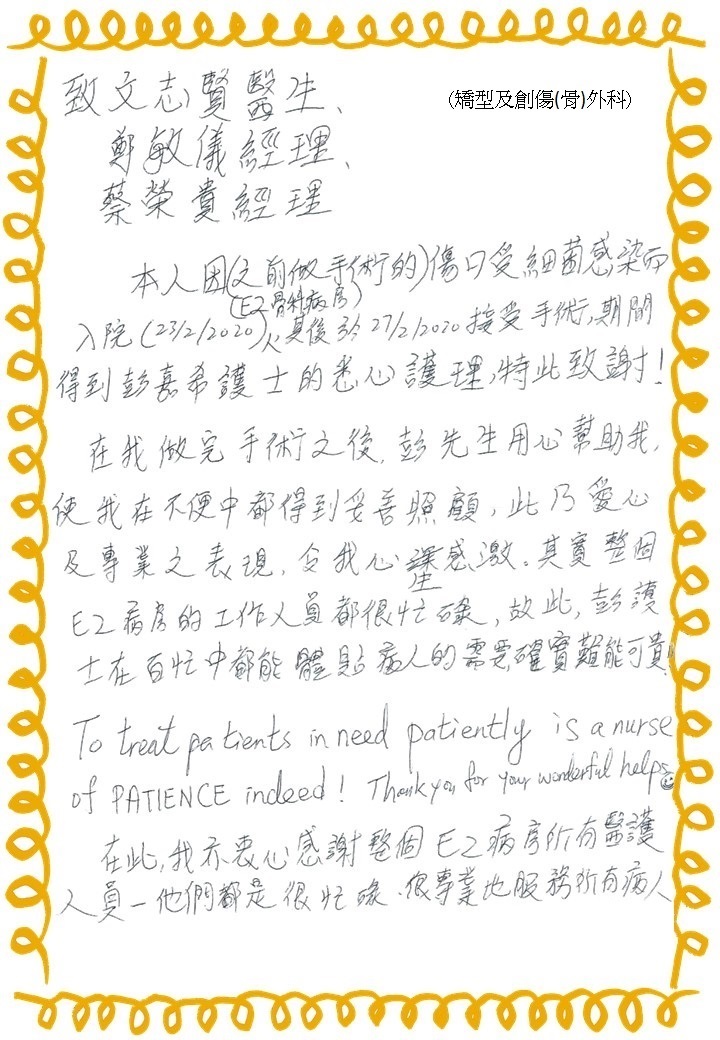 致文志賢醫生、
(矯型及創傷(骨)外科)
鄭敏儀經理、
蔡榮貴經理
本人因(之前做手術的)傷口受細菌感染而
(E2骨科病房)
入院(23/2/2020),其後於27/2/2020接受手術,期間
得到彭嘉希護士的悉心護理,特此致謝!
在我做完手術之後,彭先生用心幫助我,
使我在不便中都得到妥善照顧,此乃愛心
及專業之表現,令我心深感激。其實整個
E2病房的工作人員都很忙碌,故此,彭護
士在百忙中都能體貼病人的需要確實難能可貴!
To treat patients in need patiently is a nurse
of PATIENCE indeed! Thank you for your wonderful helps
在此,我亦衷心感謝整個E2病房所有醫護
人員—他們都是很忙碌、很專業地服務所有病人